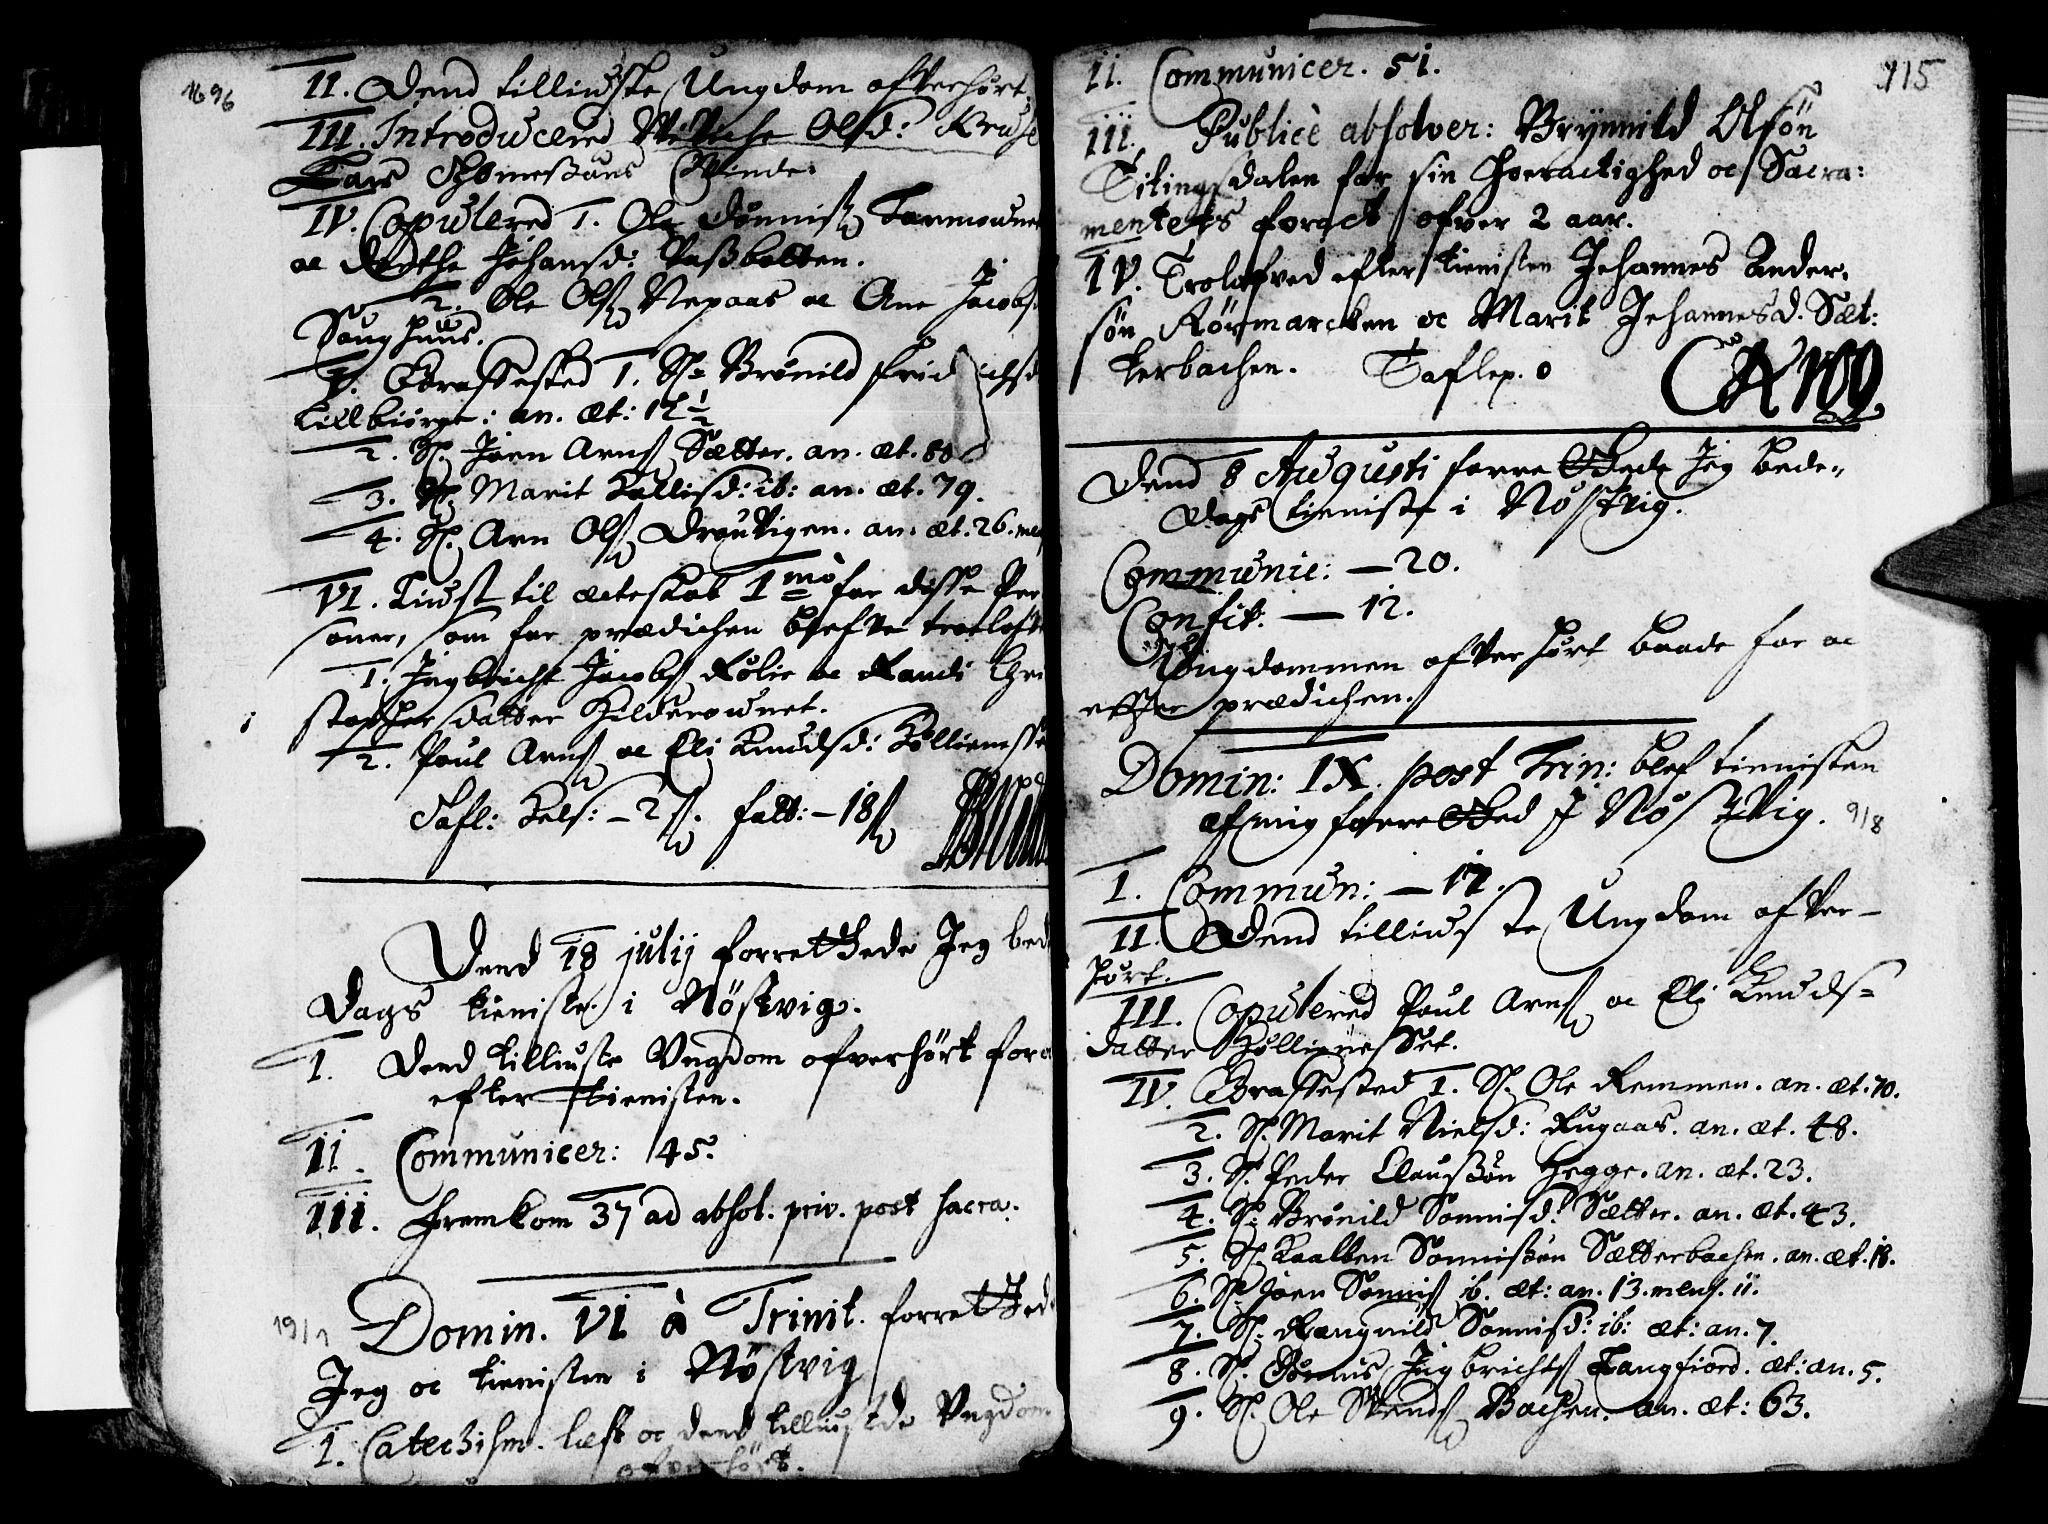 1696
II. Dend tilliuste Ungdom ofverhørt.
III. Introducered Olsd: Kruse
Lars Thomeßøns Qvinde.
IV. Copulered 1. Ole Tønnis
oc Dorthe Johansd: Paßbotten.
2. Ole Ols Nepaas oc Ane Jacobs
Soughuus.
V. Graffested 1. S. Brønild
Lillbiörge: an. æt: 12½
2. S. Joen Arns Sætter. an. æt. 80
3. S. Marit Kallisd: ib: an. æt. 79.
4. S. Arn Ols Drøuvigen. an. æt. 26.
VI. Liust til ecteskab 1mo for disse Per
soner, som for prædichen blefve trolofve
1. Ingbricht Jacobs Rølie oc Randi Chri
stophersdatter
2. Poul Arns oc Eli Knudsd:
Tafl: Kels: – 2 s. fatt: – 18 s
Dend 18 julij forrettede Jeg bede
Dags tieniste i Nöstvig.
I. Dend tilliuste Ungdom ofverhört for oc
efter tienisten.
II. Communicer: 45.
III. Fremkom 37 ad absol. priv. post sacra.
19/7 Domin. VI à Trinit. forrettede
Jeg oc tienisten i Nöstvig
1. Catechism. læst oc dend tilliuste Ungdom
ofverhört.
115
II. Communicer. 51.
III. Publicè absolver: Brynnild Olsön
Tilingsdalen for sin Horactighed oc Sacra:
mentets foract ofver 2 aar.
IV. Trolofved efter tienisten Johannes Ander,
søn Rörmarcken oc Marit Johannesd. Sæt:
terbachen. Taflep. 0
Dend 8 Augusti forrettede Jeg bede,,
Dags tieniste i Nöstvig.
Communic: — 20.
Confit. — 12.
Ungdommen ofverhört baade for oc
effter prædichen.
Domin: IX. post Trin: blef tienisten
af mig forretted I Nöstvig. 9/8
I. Commun: — 12.
II. Dend tilliuste Ungdom ofver–
hört.
III. Copulered Poul Arns oc Eli Knuds=
datter
IV. Graffested 1. S. Ole Remmen. an. æt. 70.
2. S. Marit Nielsd: Rugaas. an. æt. 48.
3. S. Peder Claußön Hegge. an. æt. 23.
4. S. Brönild Sonnisd: Sætter. an. æt. 43.
5. S. Kaalben Sonnißön Sætterbachen. an. æt. 18.
6. S. Joen Sonnis ib. æt: an. 13. mens. 11.
7. S. Rangnild Sonnisd: ib: æt: an. 7.
8. S. Ingbrichts Langfiord. æt: an. 5.
9. S. Ole Svends Bachen. an. æt: 63.